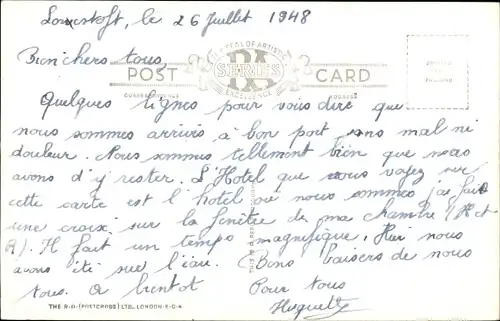 Lowestoft, le 26 Juillet 1948
Bien chers tous,
THE SEAL OF ARTISTIC
POST RA SERIES CARD
EXCELLENCE
CORRESPONDENCE ADDRESS
PRINTED
IN
ENGLAND
Quelques lignes pour vous dire que
nous sommes arrivés à bon port sans mal ni
douleur. Nous sommes tellement bien que nous
avons d'y rester. L'Hotel que vous voyez sur
cette carte est l'hotel où nous sommes j'ai fait
une croix sur la fenêtre de ma chambre (H et
A). Il fait un temps magnifique. Hier nous
avons été sur l'eau. Bons baisers de nous
tous. A bientot Pour tous
Huguette
THE R.A. (POSTCARDS) LTD., LONDON E.C.4.